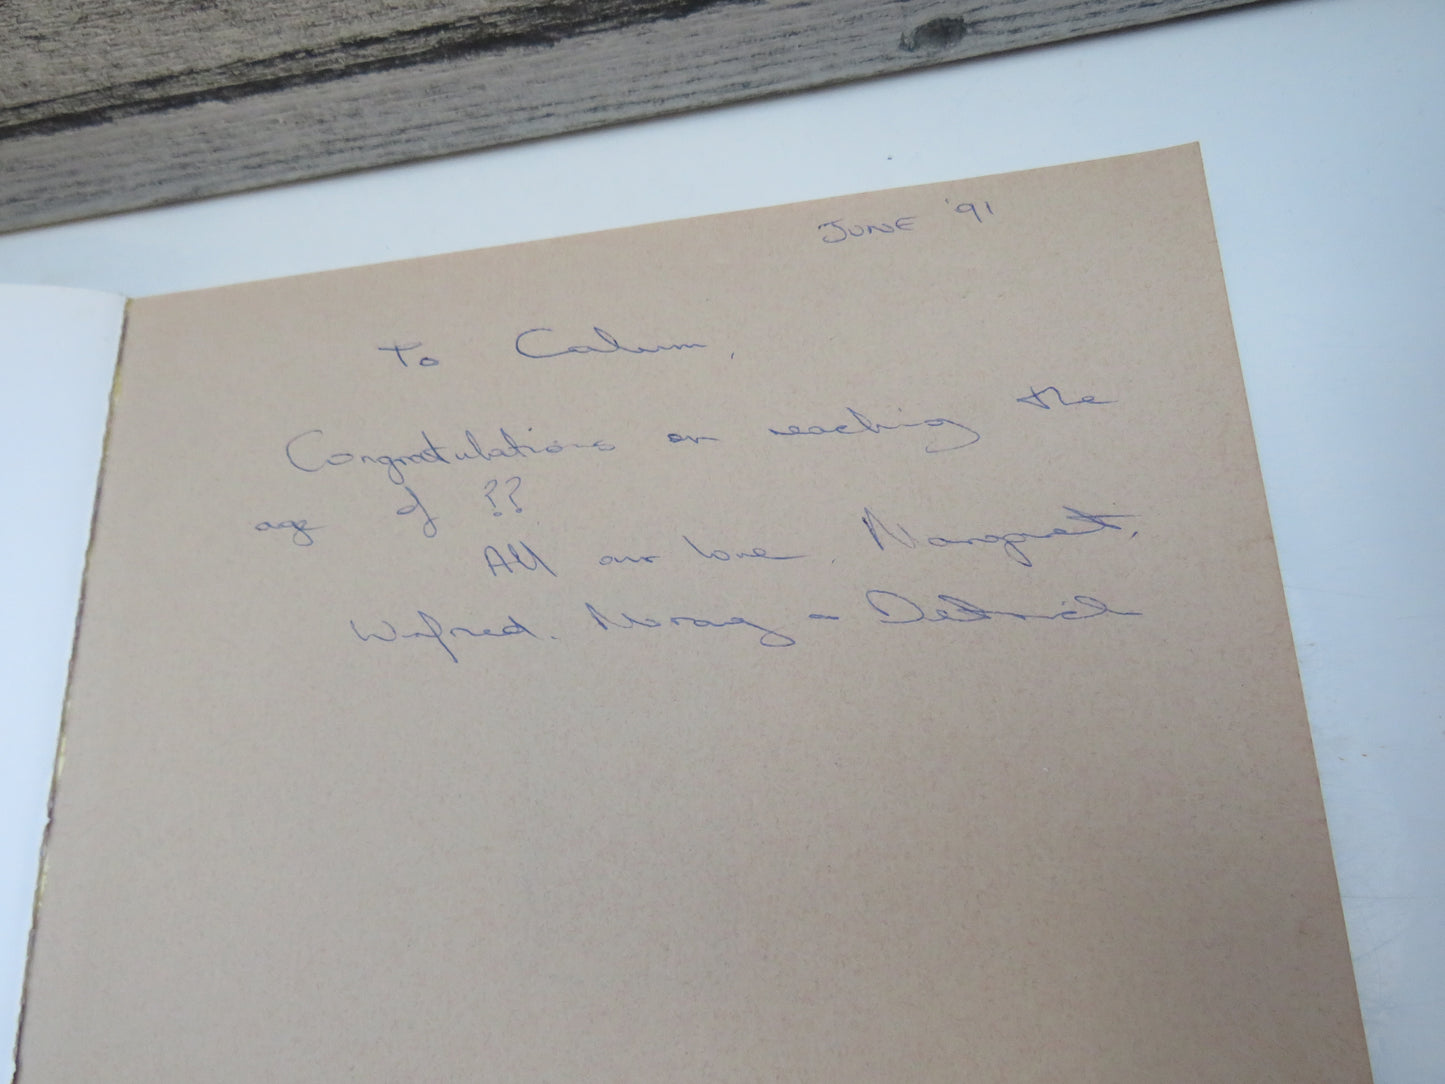 JUNE '91
To Calum,
Congratulations on reaching the
age of ??
All our love, Margaret,
Winfred, Morag